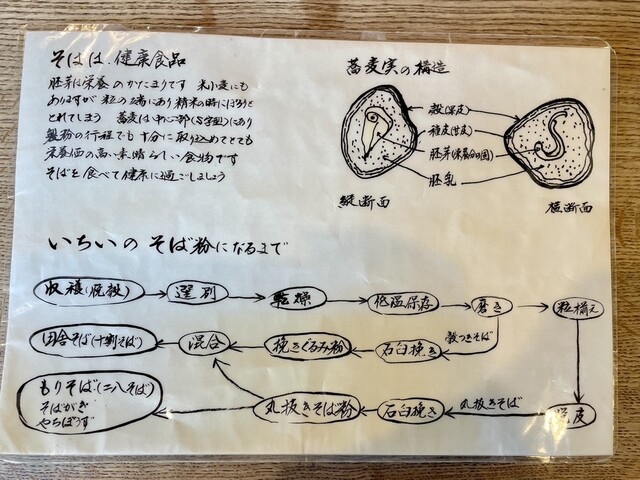 そばは、健康食品
胚芽は栄養のかたまりです 米小麦にも
ありますが 粒の端にあり精米の時にぽろりと
とれてしまう 蕎麦は中心部(S字型)にあり
製粉の行程でも十分に取り込めてとても
栄養価の高い素晴らしい食物です
そばを食べて健康に過ごしましょう
蕎麦実の構造
殻(果皮)
種皮(甘皮)
胚芽(栄養分)
胚乳
縦断面
横断面
いちいの そば粉になるまで
収穫(脱穀)
選別
乾燥
低温保存
磨き
粒揃え
田舎そば(十割そば)
混合
挽きぐるみ粉
石臼挽き
殻つきそば
もりそば(二八そば)
そばがき
やちぼうず
丸抜きそば粉
石臼挽き
丸抜きそば
脱皮